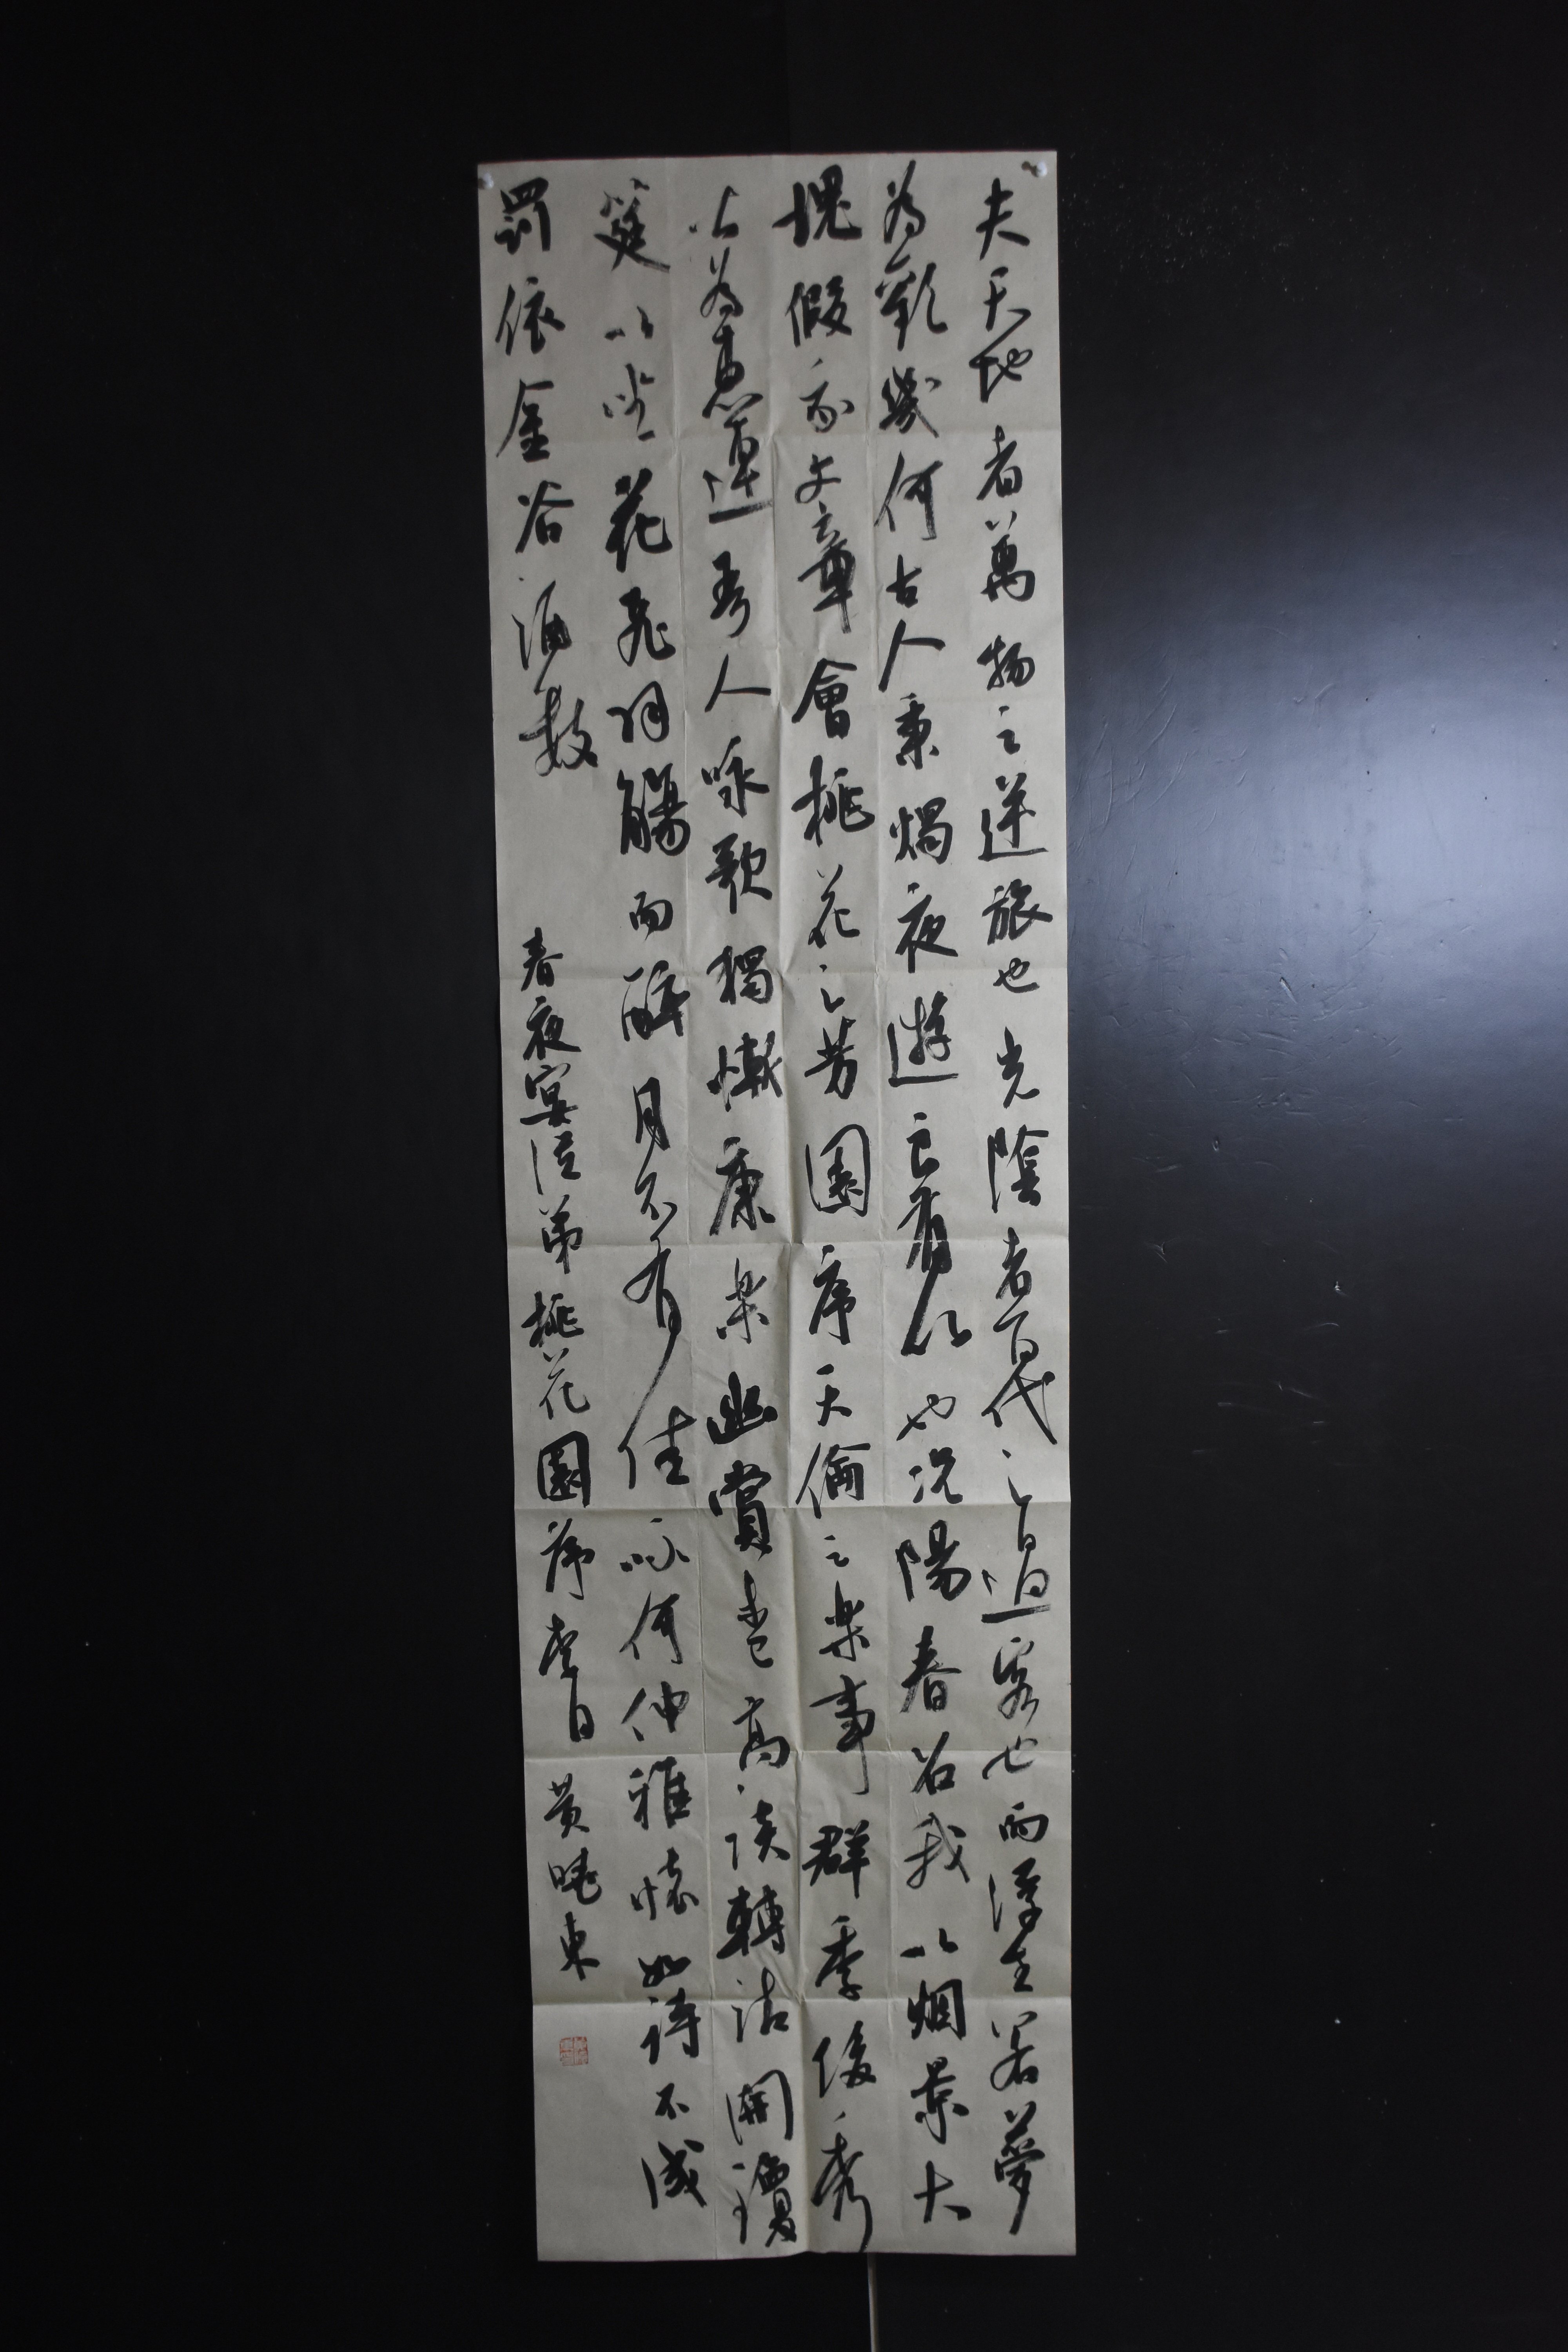 夫天地者萬物之逆旅也光陰者百代之過客也而浮生若夢
為歡幾何古人秉燭夜遊良有以也況陽春召我以烟景大
塊假我文章會桃花之芳園序天倫之樂事群季俊秀
皆為惠連吾人咏歌獨慚康樂幽賞未已高談轉清開瓊
筵以坐花飛羽觴而醉月不有佳咏何伸雅懷如詩不成
罰依金谷酒數
春夜宴從弟桃花園序李白 黃曉東